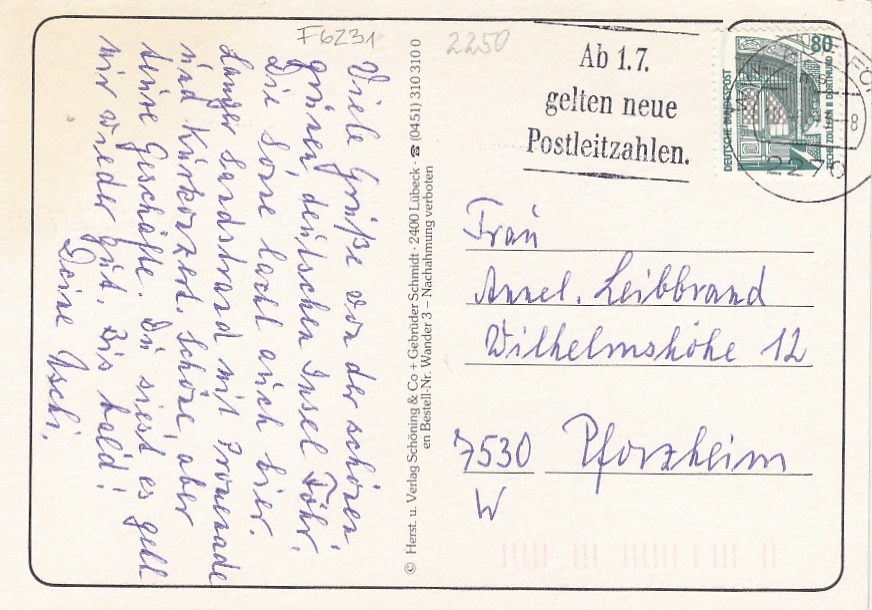 F6231
2250
Viele Grüße von der schönen,
grünen, deutschen Insel Föhr.
Die Sonne lacht auch hier.
Langer Sandstrand mit Promenade
und Kurkonzert. Schöne, aber
teure Geschäfte. Du siest es geht
mir wieder gut. Bis bald!
Deine Uschi.
© Herst. u. Verlag Schöning & Co + Gebrüder Schmidt · 2400 Lübeck · ☎ (0451) 310 310 0
en Bestell-Nr. Wander 3 – Nachahmung verboten
Ab 1.7.
gelten neue
Postleitzahlen.
80
DEUTSCHE BUNDESPOST
ZECHE ZOLLERN II DORTMUND
-8
2270
Frau
Annel. Leibbrand
Wilhelmshöhe 12
7530 Pforzheim
W